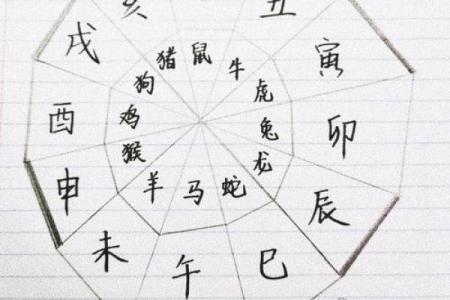 丑
寅
卯
辰
巳
午
未
申
酉
戌
亥
鼠
牛
虎
兔
龙
蛇
马
羊
猴
鸡
狗
猪